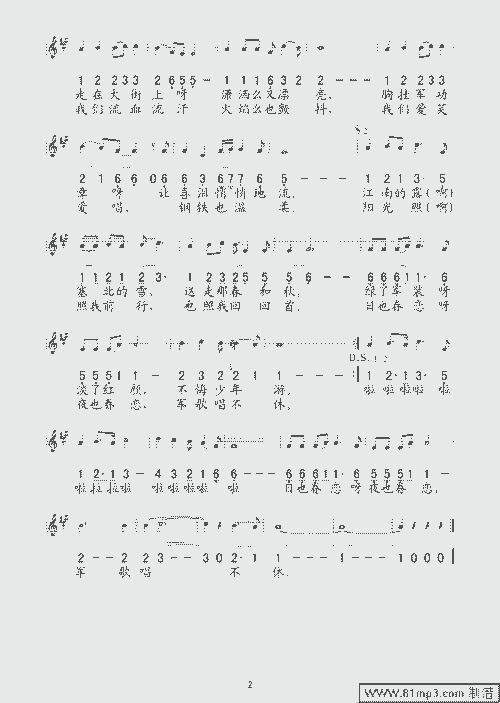 1 2 233 2 655-- 1 1 1632 2-- 1 2 233
走在大街上呀 潇洒么又漂亮, 胸挂军功
我们流血流汗 火焰么也颤抖, 我们爱笑
2 1 6 6 0 6 6 3 677 6 5--- 1 2 1 3·5
章呀 让喜泪悄悄地流, 江南的露(啊)
爱唱, 钢铁也温柔, 阳光照(啊)
1121 23· 1 2325 5 5 6-- 66611·6
塞北的雪, 送走那春和秋, 绿了军装呀
照我前行, 也照我回回首, 日也眷恋呀
D.S.
55511- 2 3 2 2 1 1--:| 1 2·1 3·5
淡了红颜, 不悔少年游, 啦啦啦啦啦
夜也眷恋, 军歌唱不休,
1 2·13- 4 3 2166-- 66611·6 5551 1-
啦啦啦啦 啦啦啦啦啦 日也眷恋呀夜也眷恋,
2-- 2 2 3-- 302· 1 1--- 1--- 1000
军歌唱不休,
2
WWW.81mp3.com 制谱